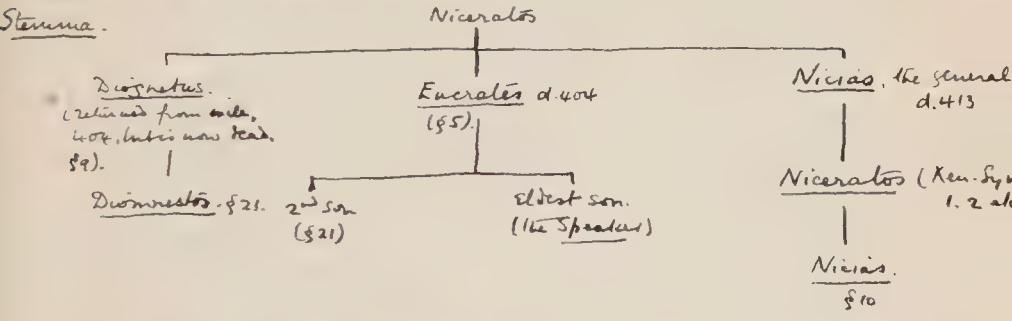 Stemma.
Niceratos
Diognetus.
(returned from exile,
404, but is now dead.
§9).
Diomnestos. §21.
Eucrates d.404
(§5).
2nd son
(§21)
Eldest son.
(the Speaker)
Nicias, the general
d.413
Niceratos (Xen. Sym
1. 2
Nicias.
§10